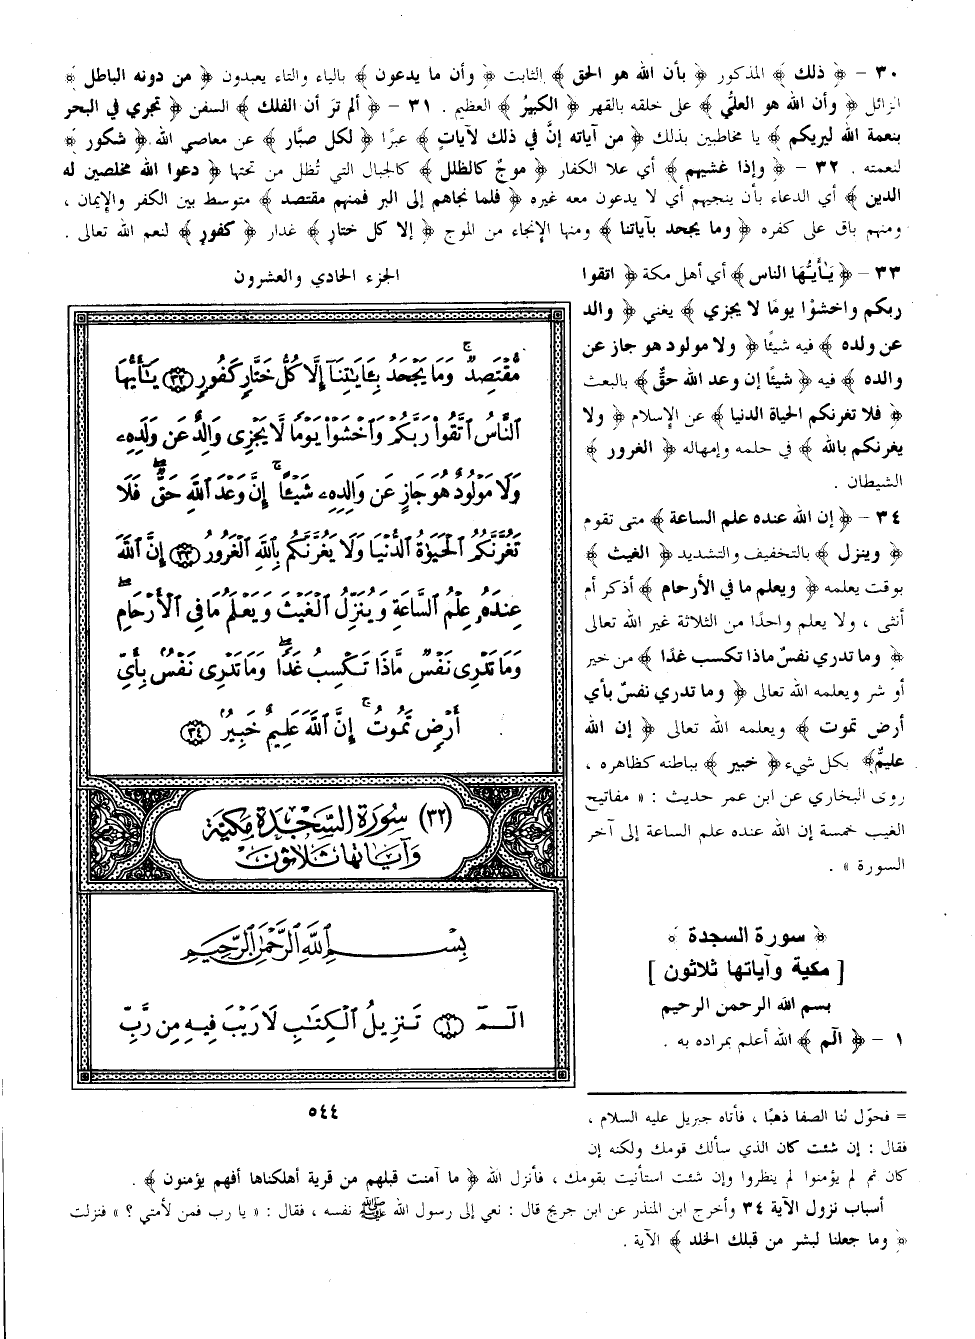 ٣٠ – ﴿ ذلك ﴾ المذكور ﴿ بأن الله هو الحق ﴾ الثابت ﴿ وأن ما يدعون ﴾ بالياء والتاء يعبدون ﴿ من دونه الباطل ﴾
الزائل ﴿ وأن الله هو العليُّ ﴾ على خلقه بالقهر ﴿ الكبيرُ ﴾ العظيم . ٣١ – ﴿ ألم ترَ أن الفلك ﴾ السفن ﴿ تجري في البحر
بنعمة الله ليريكم ﴾ يا مخاطبين بذلك ﴿ من آياته إنَّ في ذلك لآياتٍ ﴾ عبرًا ﴿ لكل صبَّار ﴾ عن معاصي الله ﴿ شكور ﴾
لنعمته . ٣٢ – ﴿ وإذا غشيهم ﴾ أي علا الكفار ﴿ موجٌ كالظلل ﴾ كالجبال التي تُظل من تحتها ﴿ دعوا الله مخلصين له
الدين ﴾ أي الدعاء بأن ينجيهم أي لا يدعون معه غيره ﴿ فلما نجاهم إلى البر فمنهم مقتصد ﴾ متوسط بين الكفر والإيمان ،
ومنهم باق على كفره ﴿ وما يجحد بآياتنا ﴾ ومنها الإنجاء من الموج ﴿ إلا كل ختارٍ ﴾ غدار ﴿ كفورٍ ﴾ لنعم الله تعالى .
٣٣ – ﴿ يَـأَيُّهَا الناس ﴾ أي أهل مكة ﴿ اتقوا
ربكم واخشوْا يومًا لا يجزي ﴾ يغني ﴿ والد
عن ولده ﴾ فيه شيئًا ﴿ ولا مولود هو جاز عن
والده ﴾ فيه ﴿ شيئًا إن وعد الله حقٌّ ﴾ بالبعث
﴿ فلا تغرنكم الحياة الدنيا ﴾ عن الإسلام ﴿ ولا
يغرنكم بالله ﴾ في حلمه وإمهاله ﴿ الغرور ﴾
الشيطان .
٣٤ – ﴿ إن الله عنده علم الساعة ﴾ متى تقوم
﴿ وينزل ﴾ بالتخفيف والتشديد ﴿ الغيث ﴾
بوقت يعلمه ﴿ ويعلم ما في الأرحام ﴾ أذكر أم
أنثى ، ولا يعلم واحدًا من الثلاثة غير الله تعالى
﴿ وما تدري نفسٌ ماذا تكسب غدًا ﴾ من خير
أو شر ويعلمه الله تعالى ﴿ وما تدري نفسٌ بأي
أرض تموت ﴾ ويعلمه الله تعالى ﴿ إن الله
عليمٌ ﴾ بكل شيء ﴿ خبير ﴾ بباطنه كظاهره ،
روى البخاري عن ابن عمر حديث : « مفاتيح
الغيب خمسة إن الله عنده علم الساعة إلى آخر
السورة » .
﴿ سورة السجدة ﴾
[ مكية وآياتها ثلاثون ]
بسم الله الرحمن الرحيم
١ – ﴿ الٓم ﴾ الله أعلم بمراده به .
الجزء الحادي والعشرون
مُّقْتَصِدٌ ۚ وَمَا يَجْحَدُ بِـَٔايَـٰتِنَآ إِلَّا كُلُّ خَتَّارٍ كَفُورٍ ﴿٣٢﴾ يَـٰٓأَيُّهَا
ٱلنَّاسُ ٱتَّقُوا۟ رَبَّكُمْ وَٱخْشَوْا۟ يَوْمًا لَّا يَجْزِى وَالِدٌ عَن وَلَدِهِۦ
وَلَا مَوْلُودٌ هُوَ جَازٍ عَن وَالِدِهِۦ شَيْـًٔا ۚ إِنَّ وَعْدَ ٱللَّهِ حَقٌّ ۖ فَلَا
تَغُرَّنَّكُمُ ٱلْحَيَوٰةُ ٱلدُّنْيَا وَلَا يَغُرَّنَّكُم بِٱللَّهِ ٱلْغَرُورُ ﴿٣٣﴾ إِنَّ ٱللَّهَ
عِندَهُۥ عِلْمُ ٱلسَّاعَةِ وَيُنَزِّلُ ٱلْغَيْثَ وَيَعْلَمُ مَا فِى ٱلْأَرْحَامِ ۖ
وَمَا تَدْرِى نَفْسٌ مَّاذَا تَكْسِبُ غَدًا ۖ وَمَا تَدْرِى نَفْسٌۢ بِأَىِّ
أَرْضٍ تَمُوتُ ۚ إِنَّ ٱللَّهَ عَلِيمٌ خَبِيرٌۢ ﴿٣٤﴾
(٣٢) سُورَة السَّجْدَة مَكيَّة
وَآيَاتُهَا ثَلَاثُونَ
بِسْمِ ٱللَّهِ ٱلرَّحْمَـٰنِ ٱلرَّحِيمِ
الٓمٓ ﴿١﴾ تَنزِيلُ ٱلْكِتَـٰبِ لَا رَيْبَ فِيهِ مِن رَّبِّ
٥٤٤
= فحوّل لنا الصفا ذهبًا ، فأتاه جبريل عليه السلام ،
فقال : إن شئت كان الذي سألك قومك ولكنه إن
كان ثم لم يؤمنوا لم ينظروا وإن شئت استأنيت بقومك ، فأنزل الله ﴿ ما آمنت قبلهم من قرية أهلكناها أفهم يؤمنون ﴾ .
أسباب نزول الآية ٣٤ وأخرج ابن المنذر عن ابن جريج قال : نعي إلى رسول الله ﷺ نفسه ، فقال : « يا رب فمن لأمتي ؟ » فنزلت
﴿ وما جعلنا لبشر من قبلك الخلد ﴾ الآية .